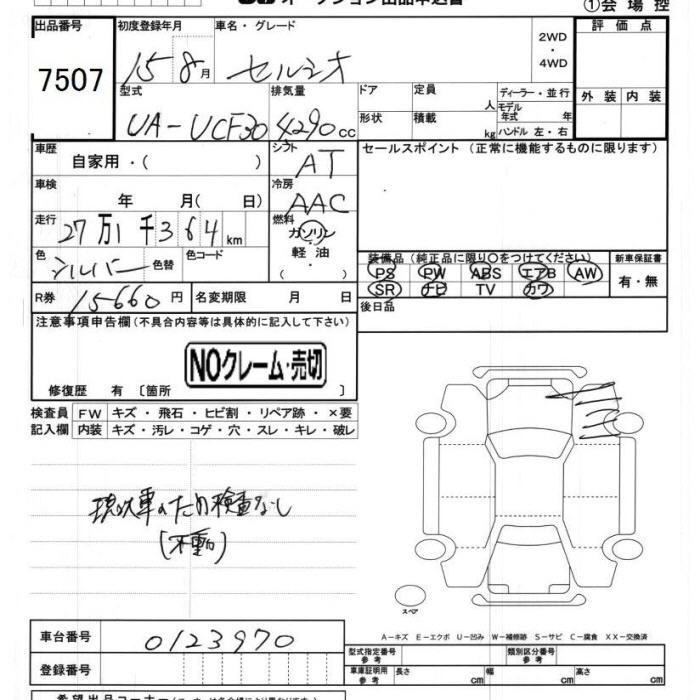 オークション出品申込書
①会場控
出品番号 初度登録年月 車名・グレード 2WD・4WD 評価点
7507 15 8月 セルシオ
型式 排気量 ドア 定員 人 ディーラー・並行 外装 内装
UA-UCF30 4290cc 形状 積載 kg モデル年式 年 ハンドル 左・右
車歴 自家用・( ) シフト AT セールスポイント(正常に機能するものに限ります)
車検 年 月(日) 冷房 AAC
走行 27万1千364km 燃料 ガソリン・軽油・( )
色 シルバー 色替 色コード 装備品(純正品に限り○をつけてください) 新車保証書
PS PW ABS エアB AW 有・無
SR ナビ TV カワ
R券 15660円 名変期限 月 日 後日品
注意事項申告欄(不具合内容等は具体的に記入して下さい)
NOクレーム・売切
修復歴 有〔箇所 〕
検査員 FW キズ・飛石・ヒビ割・リペア跡・×要
記入欄 内装 キズ・汚レ・コゲ・穴・スレ・キレ・破レ
現状車のため検査なし
(不動)
スペア
A-キズ E-エクボ U-凹み W-補修跡 S-サビ C-腐食 XX-交換済
車台番号 0123970 型式指定番号 参考 類別区分番号 参考
登録番号 車庫証明用 参考 長さ cm 幅 cm 高さ cm
希望出品コーナー